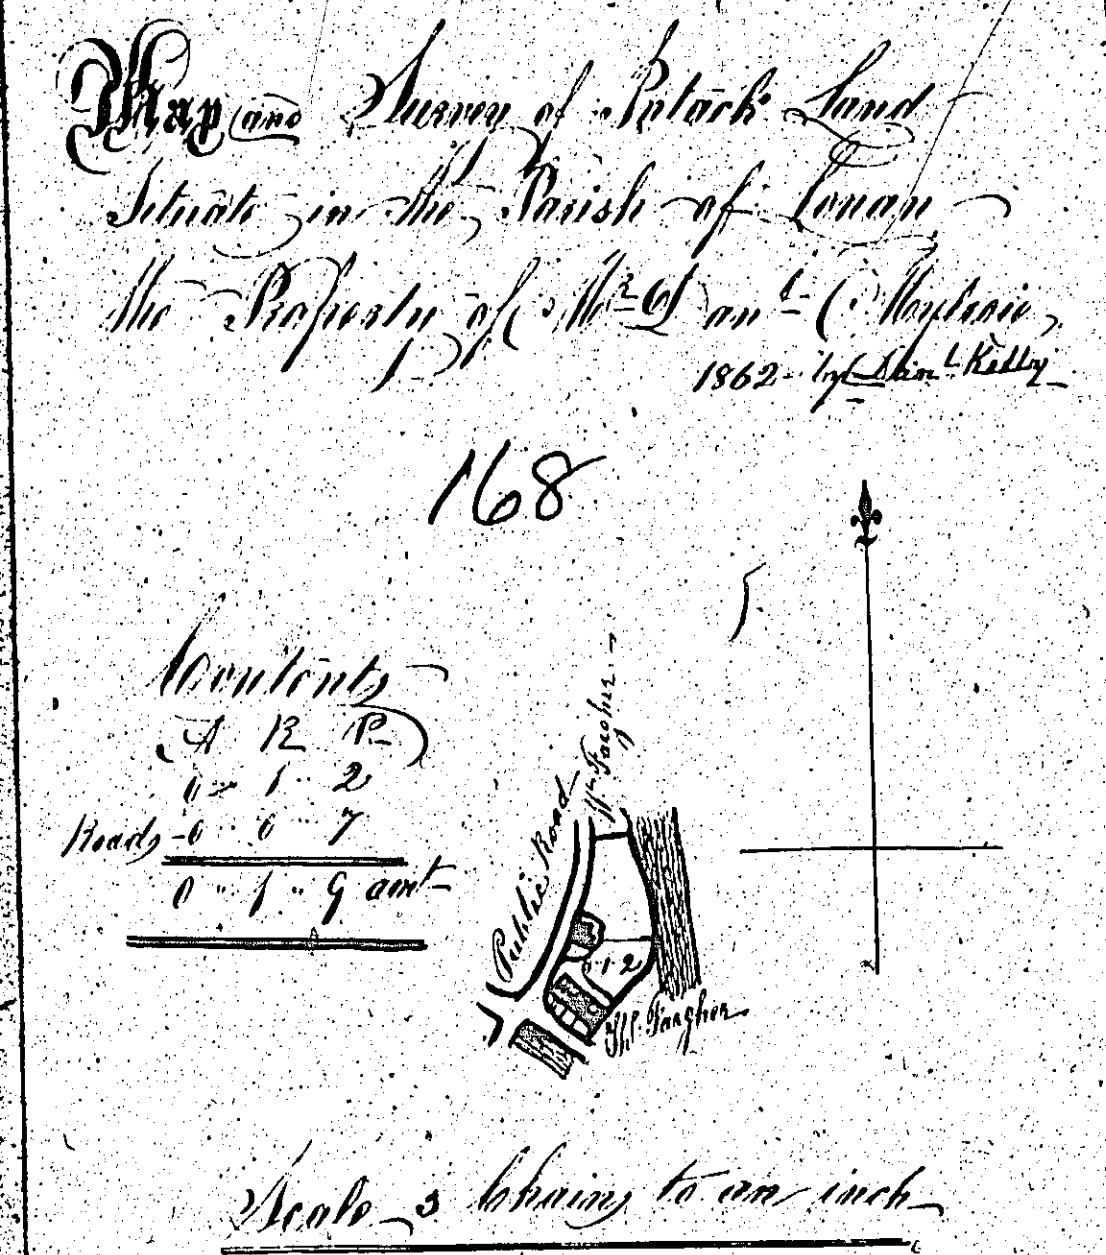 Map and Survey of Intack Land
Situate in the Parish of Lonan
the Property of Mr
1862 by Kelly
168
Contents
A R P
0 " 1 " 2
Roads - 0 " 0 " 7
0 " 1 " 9 amt
Public Road
Wm Faragher
0.1.2
Faragher
Scale 3 Chains to an inch